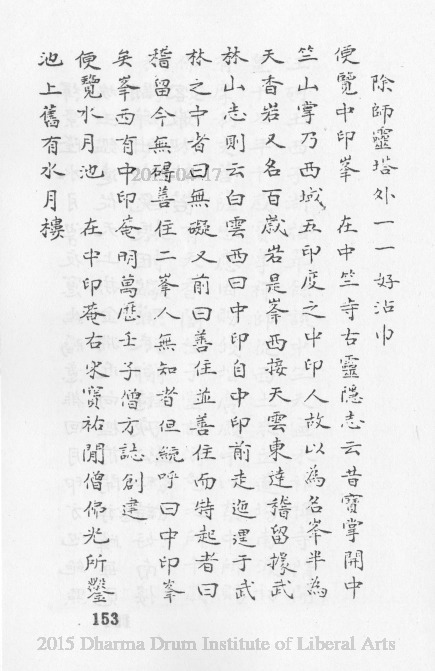 除師靈塔外一一好沾巾
便覽中印峯　在中竺寺古靈隱志云昔寶掌開中
竺山掌乃西域五印度之中印人故以為名峯半為
天香岩又名百歲岩是峯西接天雲東達稽留據武
林山志則云白雲西曰中印自中印前走迤邐于武
林之宁者曰無礙又前曰善住並善住而特起者曰
稽留今無礙善住二峯人無知者但統呼曰中印峯
矣峯西有中印庵明萬歷壬子僧方誌創建
便覽水月池　在中印菴右宋寶祐間僧佛光所鑿
池上舊有水月樓
153
2015-04-17
2015 Dharma Drum Institute of Liberal Arts